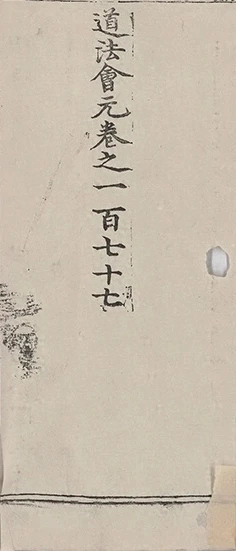 道法會元卷之一百七十七